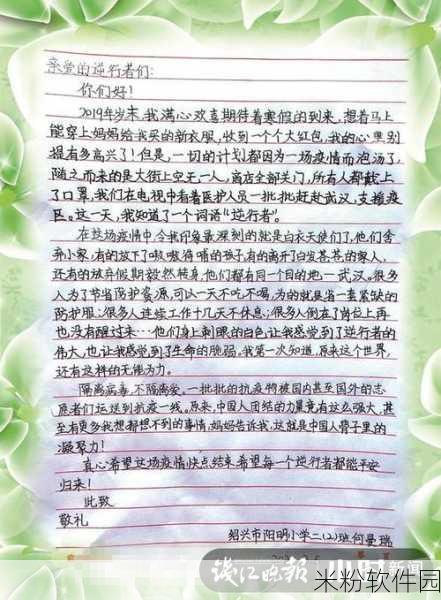 亲爱的逆行者们:
你们好!
2019年岁末,我满心欢喜期待着寒假的到来,想着马上
能穿上妈妈给我买的新衣服,收到一个个大红包,我的心里别
提有多高兴了!但是,一切的计划都因为一场疫情而泡汤了,
随之而来的是大街上空无一人,商店全部关门,所有人都戴上
了口罩,我们在电视中看着医护人员一批批赶赴武汉,支援疫
区。这一天,我知道了一个词语“逆行者”。
在这场疫情中,令我印象最深刻的就是白衣天使们了,他们舍
弃小家,有的放下了嗷嗷待哺的孩子,有的离开白发苍苍的家人,
还有的放弃假期毅然转身,他们都有同一个目的地—武汉。很多
人为了节省防护资源,可以一天不吃不喝,为的就是省一套紧缺的
防护服;很多人连续工作十几天不休息;很多人倒在了岗位上再
也没有醒过来…他们身上刺眼的白色,让我感觉到了逆行者的
伟大,也让我感觉到了生命的脆弱。我第一次知道,原来这个世界,
还有这样的无能为力。
隔离病毒,不隔离爱。一批批的抗疫物被国内甚至国外的志
愿者们运送到抗疫一线。原来,中国人团结的力量竟有这么强大,甚
至有更多我想都想不到的事情,妈妈告诉我,这就是中国人骨子里的
凝聚力!
真心希望这场疫情快点结束,希望每一个逆行者都能平安
归来!
此致
敬礼
绍兴市阳明小学二(2)班何曼瑞
钱江晚报 小时新闻
米粉软件园